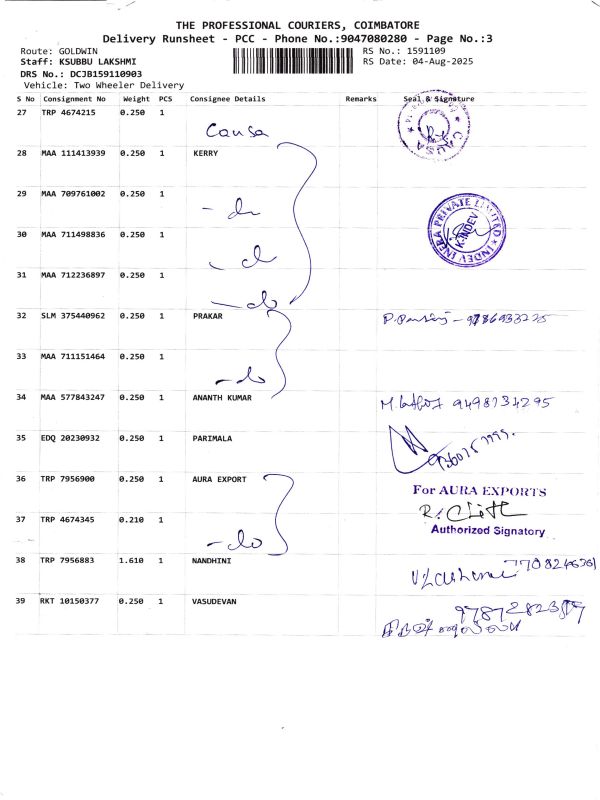 THE PROFESSIONAL COURIERS, COIMBATORE
Delivery Runsheet - PCC - Phone No.:9047080280 - Page No.:3
Route: GOLDWIN RS No.: 1591109
Staff: KSUBBU LAKSHMI RS Date: 04-Aug-2025
DRS No.: DCJB159110903
Vehicle: Two Wheeler Delivery
S No Consignment No Weight PCS Consignee Details Remarks Seal & Signature
27 TRP 4674215 0.250 1
Causa CAUSA
28 MAA 111413939 0.250 1 KERRY
29 MAA 709761002 0.250 1
- do INDEV INFRA PRIVATE LIMITED K-INDEV
30 MAA 711498836 0.250 1
- d
31 MAA 712236897 0.250 1
- do
32 SLM 375440962 0.250 1 PRAKAR
33 MAA 711151464 0.250 1
- do
34 MAA 577843247 0.250 1 ANANTH KUMAR 9498134295
35 EDQ 20230932 0.250 1 PARIMALA
36 TRP 7956900 0.250 1 AURA EXPORT
For AURA EXPORTS
37 TRP 4674345 0.210 1
- do Authorized Signatory
38 TRP 7956883 1.610 1 NANDHINI
39 RKT 10150377 0.250 1 VASUDEVAN